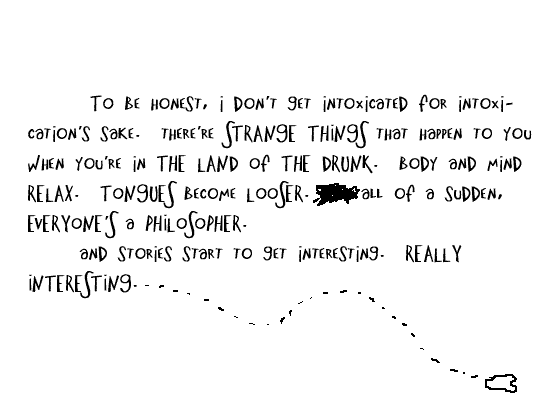 TO BE HONEST, i DON'T GET iNTOXiCATED fOR iNTOXi-
CATiON'S SAKE. THERE'RE STRANGE THiNGS THAT HAPPEN TO YOU
WHEN YOU'RE iN THE LAND Of THE DRUNK. BODY AND MiND
RELAX. TONGUES BECOME LOOSER. ALL Of A SUDDEN,
EVERYONE'S A PHiLOSOPHER.
AND STORiES START TO GET iNTERESTiNG. REALLY
iNTERESTiNG.